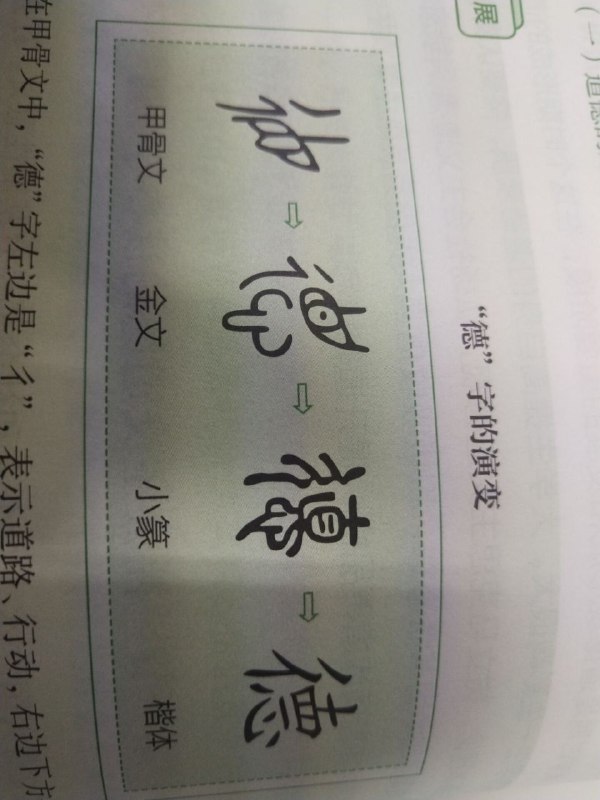 （一）道德的
展
“德”字的演变
德 ⇨ 德 ⇨ 德 ⇨ 德
甲骨文 金文 小篆 楷体
在甲骨文中，“德”字左边是“彳”，表示道路、行动，右边下方